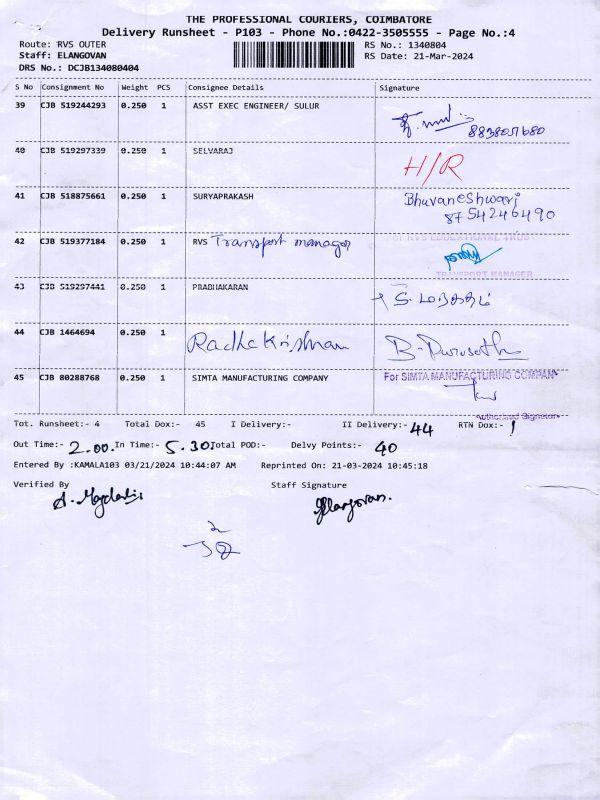 THE PROFESSIONAL COURIERS, COIMBATORE
Delivery Runsheet - P103 - Phone No.:0422-3505555 - Page No.:4
Route: RVS OUTER RS No.: 1340804
Staff: ELANGOVAN RS Date: 21-Mar-2024
DRS No.: DCJB134080404
S No Consignment No Weight PCS Consignee Details Signature
39 CJB 519244293 0.250 1 ASST EXEC ENGINEER/ SULUR
8838051680
40 CJB 519297339 0.250 1 SELVARAJ H/R
41 CJB 518875661 0.250 1 SURYAPRAKASH Bhuvaneshwari
8754246490
42 CJB 519377184 0.250 1 RVS Transport manager
RVS EDUCATIONAL TRUST
TRANSPORT MANAGER
43 CJB 519297441 0.250 1 PRABHAKARAN
44 CJB 1464694 0.250 1 Radhakrishnan
45 CJB 80288768 0.250 1 SIMTA MANUFACTURING COMPANY For SIMTA MANUFACTURING COMPANY
Authorised Signatory
Tot. Runsheet:- 4 Total Dox:- 45 I Delivery:- II Delivery:- 44 RTN Dox:- 1
Out Time:- 2.00. In Time:- 5.30 Total POD:- Delvy Points:- 40
Entered By :KAMALA103 03/21/2024 10:44:07 AM Reprinted On: 21-03-2024 10:45:18
Verified By Staff Signature
Elangovan.